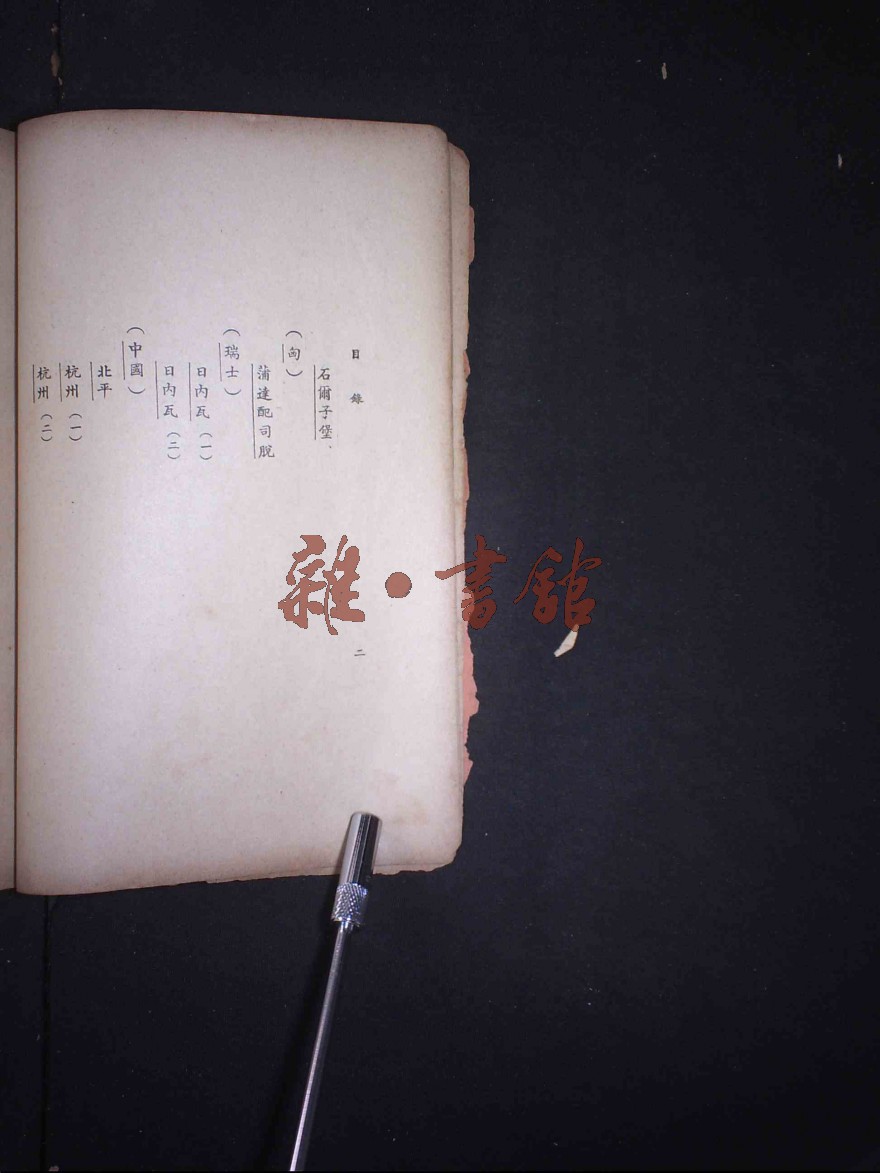 目錄
二
石爾子堡
（匈）
蒲達配司脫
（瑞士）
日內瓦（一）
日內瓦（二）
（中國）
北平
杭州（一）
杭州（二）
雜·書館